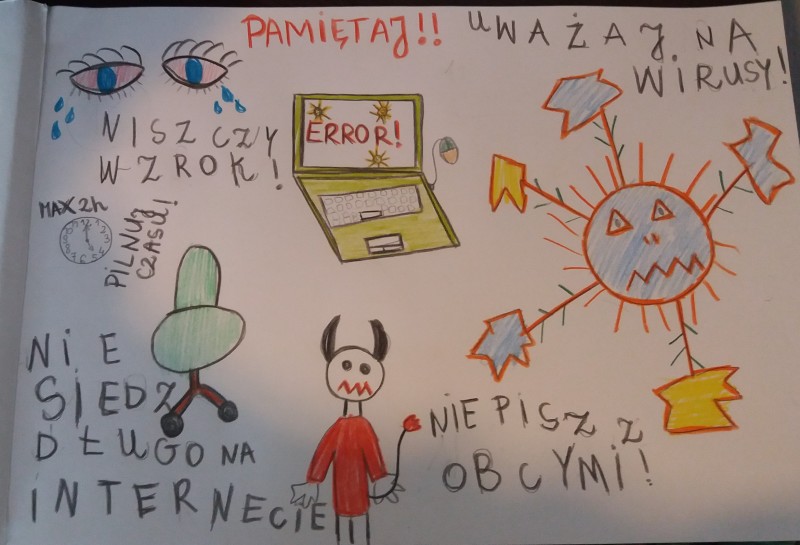 PAMIĘTAJ!!
UWAŻAJ NA
WIRUSY!
NISZCZY
WZROK!
ERROR!
MAX 2h
PILNUJ
CZASU!
NIE
SIEDZ
DŁUGO NA
INTERNECIE
NIE PISZ Z
OBCYMI!